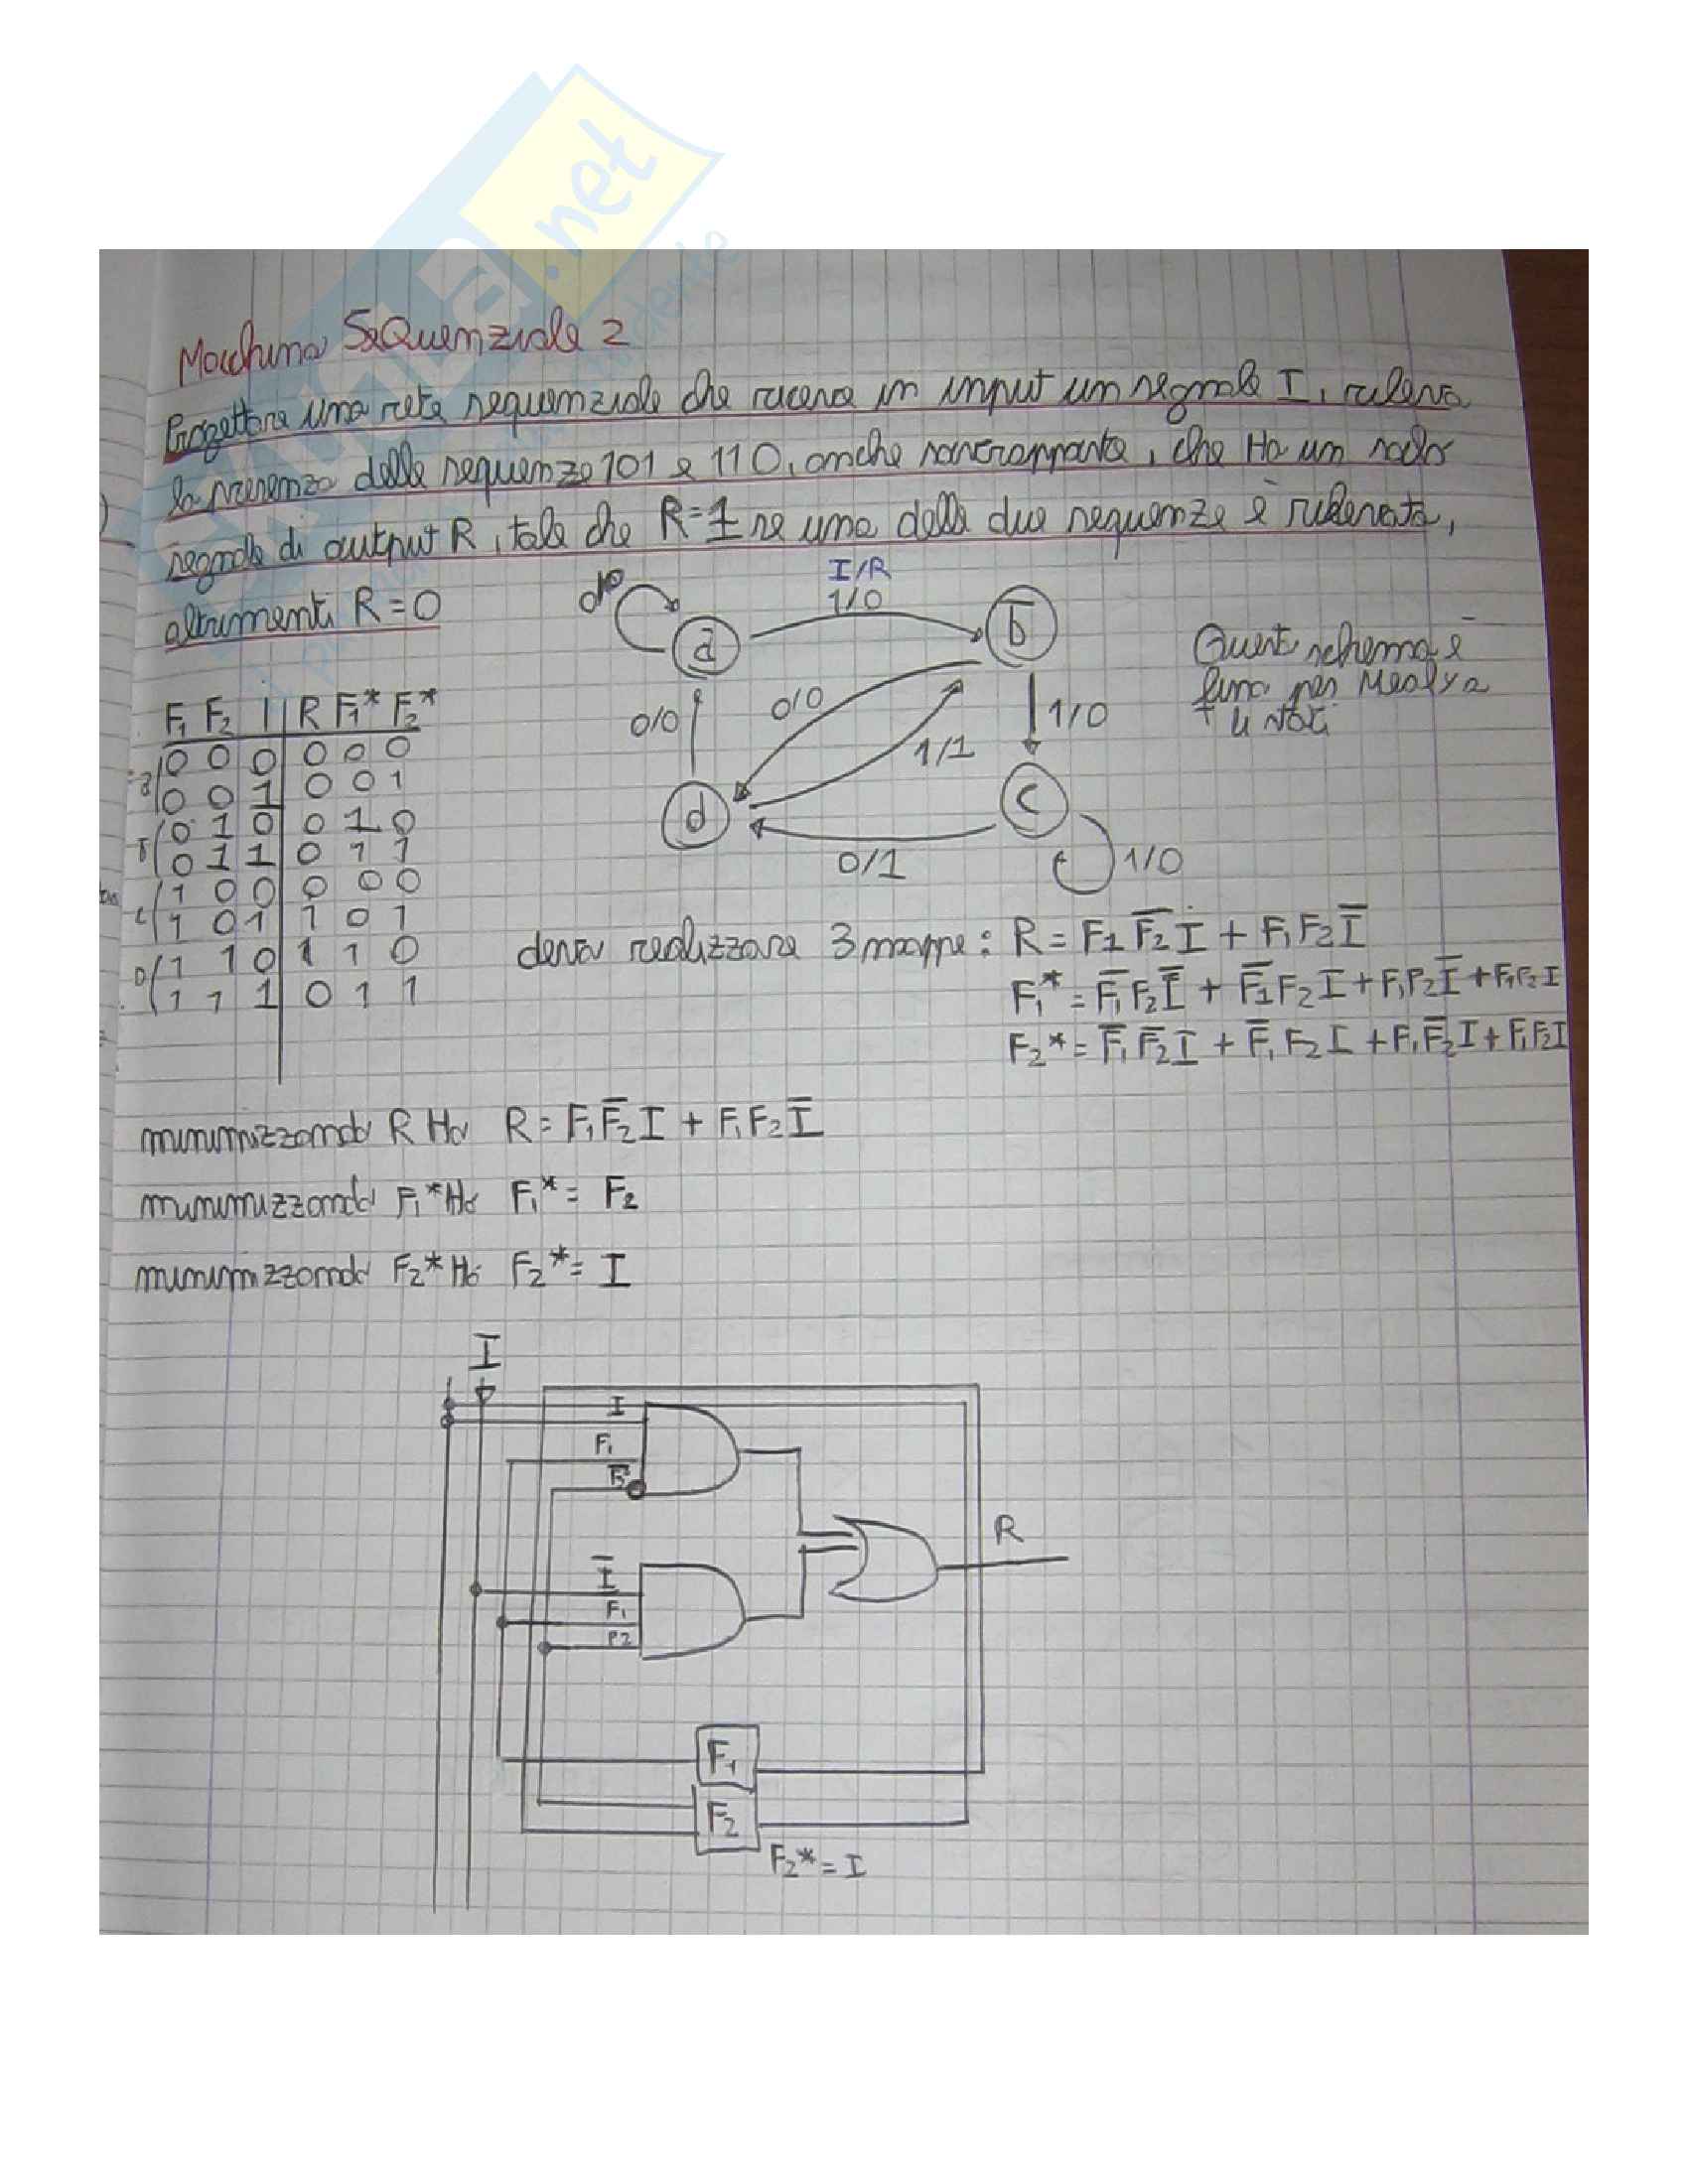 Macchina Sequenziale 2
Progettare una rete sequenziale che riceva in input un segnale I, rileva
la presenza delle sequenze 101 e 110, anche sovrapposte, che Ha un solo
segnale di output R, tale che R=1 se una delle due sequenze è rilevata,
altrimenti R=0
I/R
1/0
a
b
0/0
0/0
1/1
1/0
d
c
0/1
1/0
Questo schema è
fino per Mealy a
4 stati
F₁ F₂ I R F₁* F₂*
0 0 0 0 0 0
0 0 1 0 0 1
0 1 0 0 1 0
0 1 1 0 1 1
1 0 0 0 0 0
1 0 1 1 0 1
1 1 0 1 1 0
1 1 1 0 1 1
devo realizzare 3 mappe: R = F₁F̅₂I + F₁F₂I̅
F₁* = F̅₁F₂I̅ + F̅₁F₂I + F₁F₂I̅ + F₁F₂I
F₂* = F̅₁F̅₂I + F̅₁F₂I + F₁F̅₂I + F₁F₂I
minimizzando R Ho R = F₁F̅₂I + F₁F₂I̅
minimizzando F₁* Ho F₁* = F₂
minimizzando F₂* Ho F₂* = I
I
I
F₁
F̅₂
R
I̅
F₁
F2
F₁
F₂
F₂* = I
.net